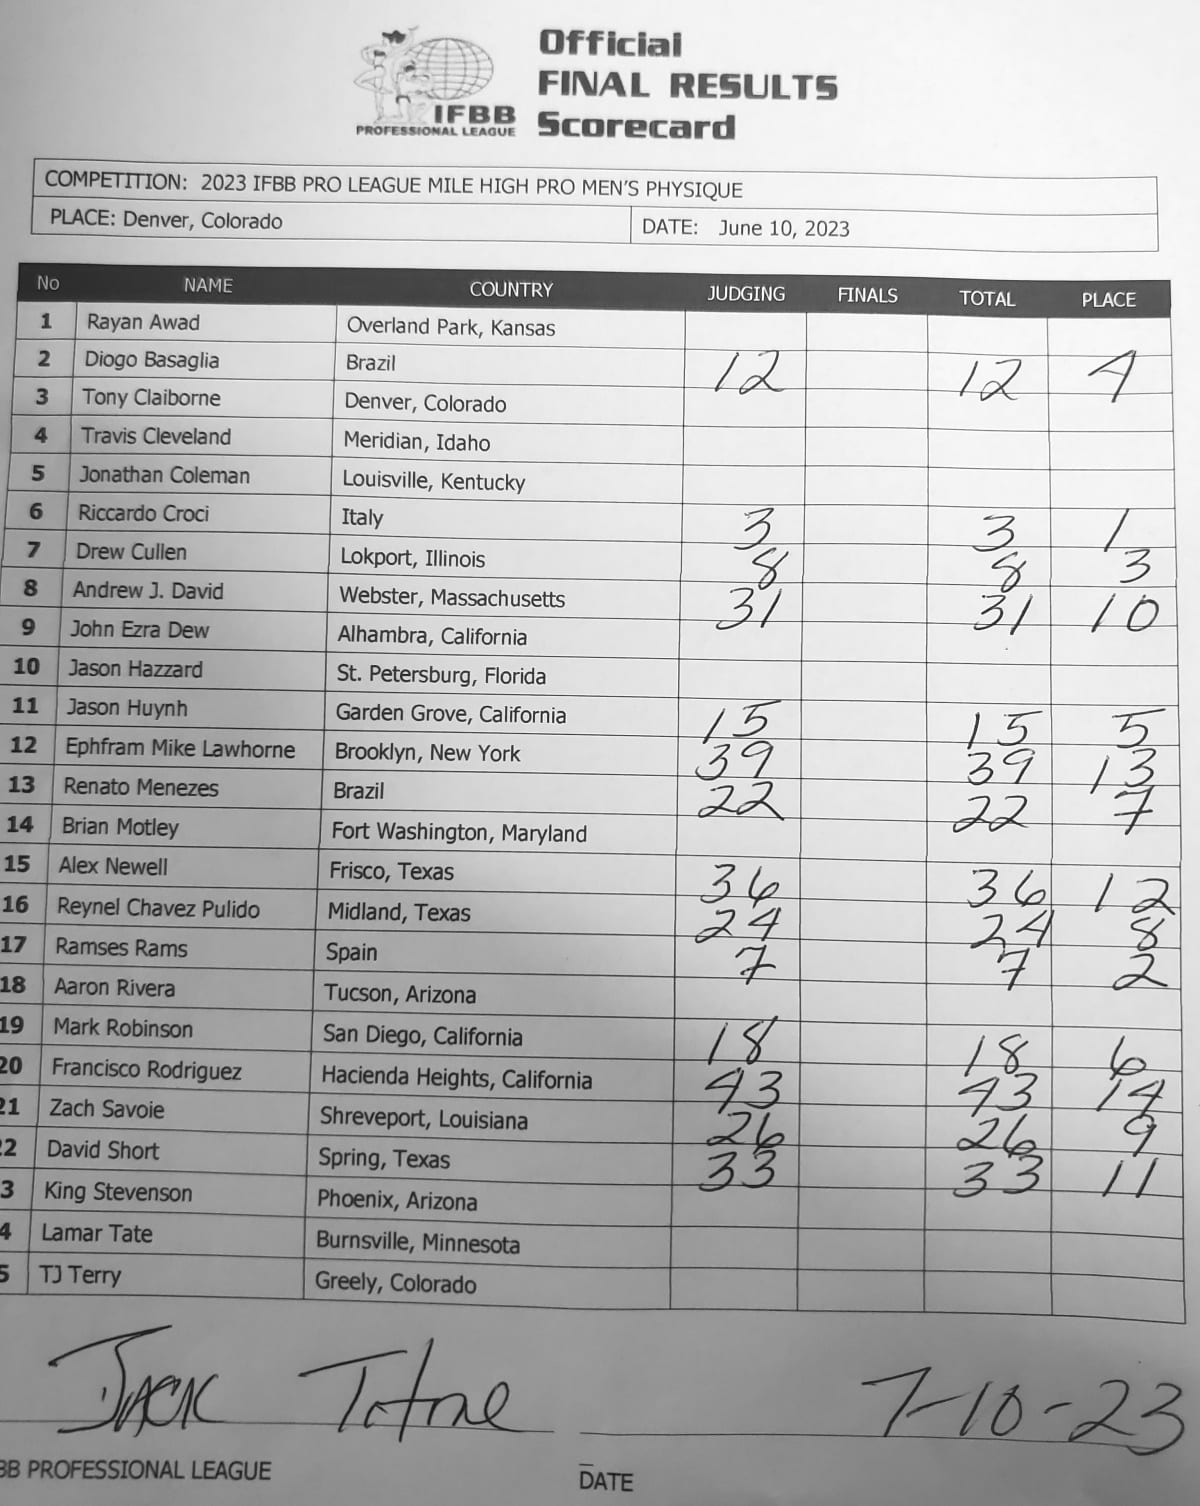 IFBB
PROFESSIONAL LEAGUE
Official
FINAL RESULTS
Scorecard
COMPETITION: 2023 IFBB PRO LEAGUE MILE HIGH PRO MEN'S PHYSIQUE
PLACE: Denver, Colorado DATE: June 10, 2023
No NAME COUNTRY JUDGING FINALS TOTAL PLACE
1 Rayan Awad Overland Park, Kansas
2 Diogo Basaglia Brazil 12 12 4
3 Tony Claiborne Denver, Colorado
4 Travis Cleveland Meridian, Idaho
5 Jonathan Coleman Louisville, Kentucky
6 Riccardo Croci Italy 3 3 1
7 Drew Cullen Lokport, Illinois 8 8 3
8 Andrew J. David Webster, Massachusetts 31 31 10
9 John Ezra Dew Alhambra, California
10 Jason Hazzard St. Petersburg, Florida
11 Jason Huynh Garden Grove, California 15 15 5
12 Ephfram Mike Lawhorne Brooklyn, New York 39 39 13
13 Renato Menezes Brazil 22 22 7
14 Brian Motley Fort Washington, Maryland
15 Alex Newell Frisco, Texas 36 36 12
16 Reynel Chavez Pulido Midland, Texas 24 24 8
17 Ramses Rams Spain 7 7 2
18 Aaron Rivera Tucson, Arizona
19 Mark Robinson San Diego, California 18 18 6
20 Francisco Rodriguez Hacienda Heights, California 43 43 14
21 Zach Savoie Shreveport, Louisiana 26 26 9
22 David Short Spring, Texas 33 33 11
3 King Stevenson Phoenix, Arizona
4 Lamar Tate Burnsville, Minnesota
5 TJ Terry Greely, Colorado
Jack Titone 7-10-23
BB PROFESSIONAL LEAGUE DATE